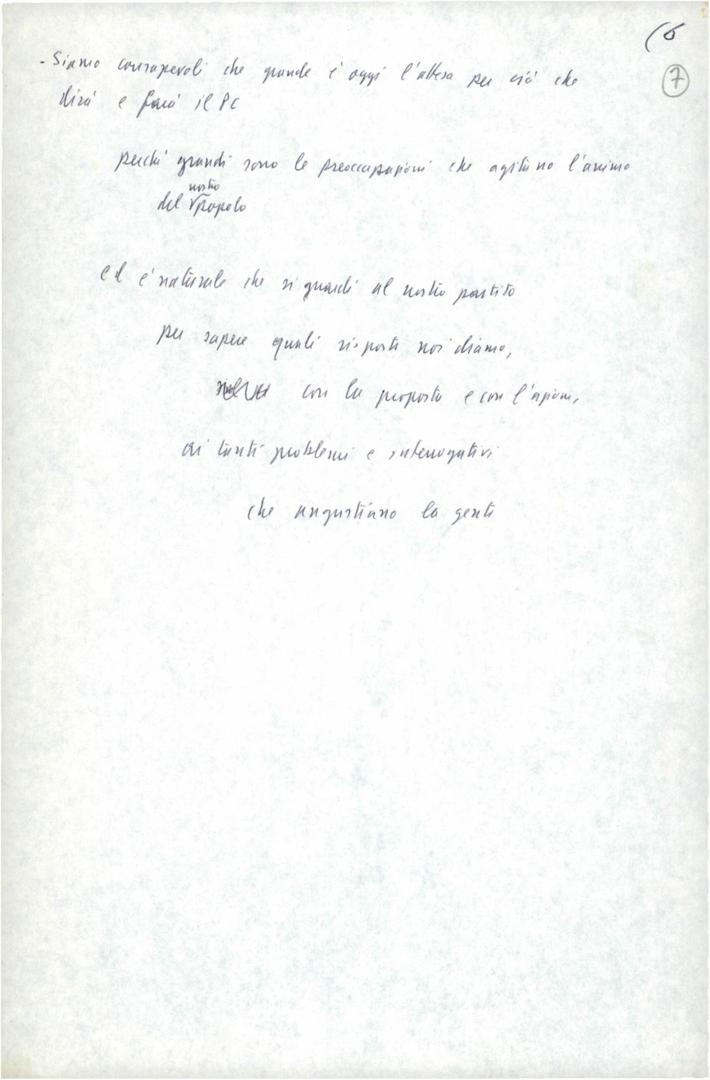 (6
7
- Siamo consapevoli che grande è oggi l'attesa per ciò che
dirà e farà il PC
perché grandi sono le preoccupazioni che agitano l'animo
nostro
del popolo
ed è naturale che si guardi al nostro partito
per sapere quali risposte noi diamo,
con la proposta e con l'azione,
ai tanti problemi e interrogativi
che angustiano la gente